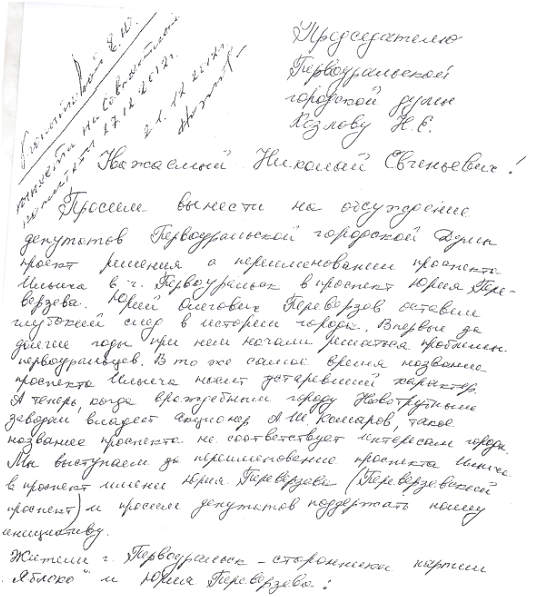 вынести на совместный
комитет 27.12.2012г.
21.12.2012г.
Председателю
Первоуральской
городской думы
Козлову Н.Е.
Уважаемый Николай Евгеньевич!
Просим вынести на обсуждение
депутатов Первоуральской городской Думы
проект решения о переименовании проспекта
Ильича в г. Первоуральск в проспект Юрия Пере-
верзева. Юрий Олегович Переверзев оставил
глубокий след в истории города. Впервые за
долгие годы при нем начали решаться проблемы
первоуральцев. В то же самое время название
проспекта Ильича носит устаревший характер.
А теперь, когда враждебным городу Новотрубным
заводом владеет акционер А.И. Комаров, такое
название проспекта не соответствует интересам города.
Мы выступаем за переименование проспекта Ильича
в проспект имени Юрия Переверзева (Переверзевский
проспект) и просим депутатов поддержать нашу
инициативу.
Жители г. Первоуральск – сторонники партии
„Яблоко" и Юрия Переверзева!